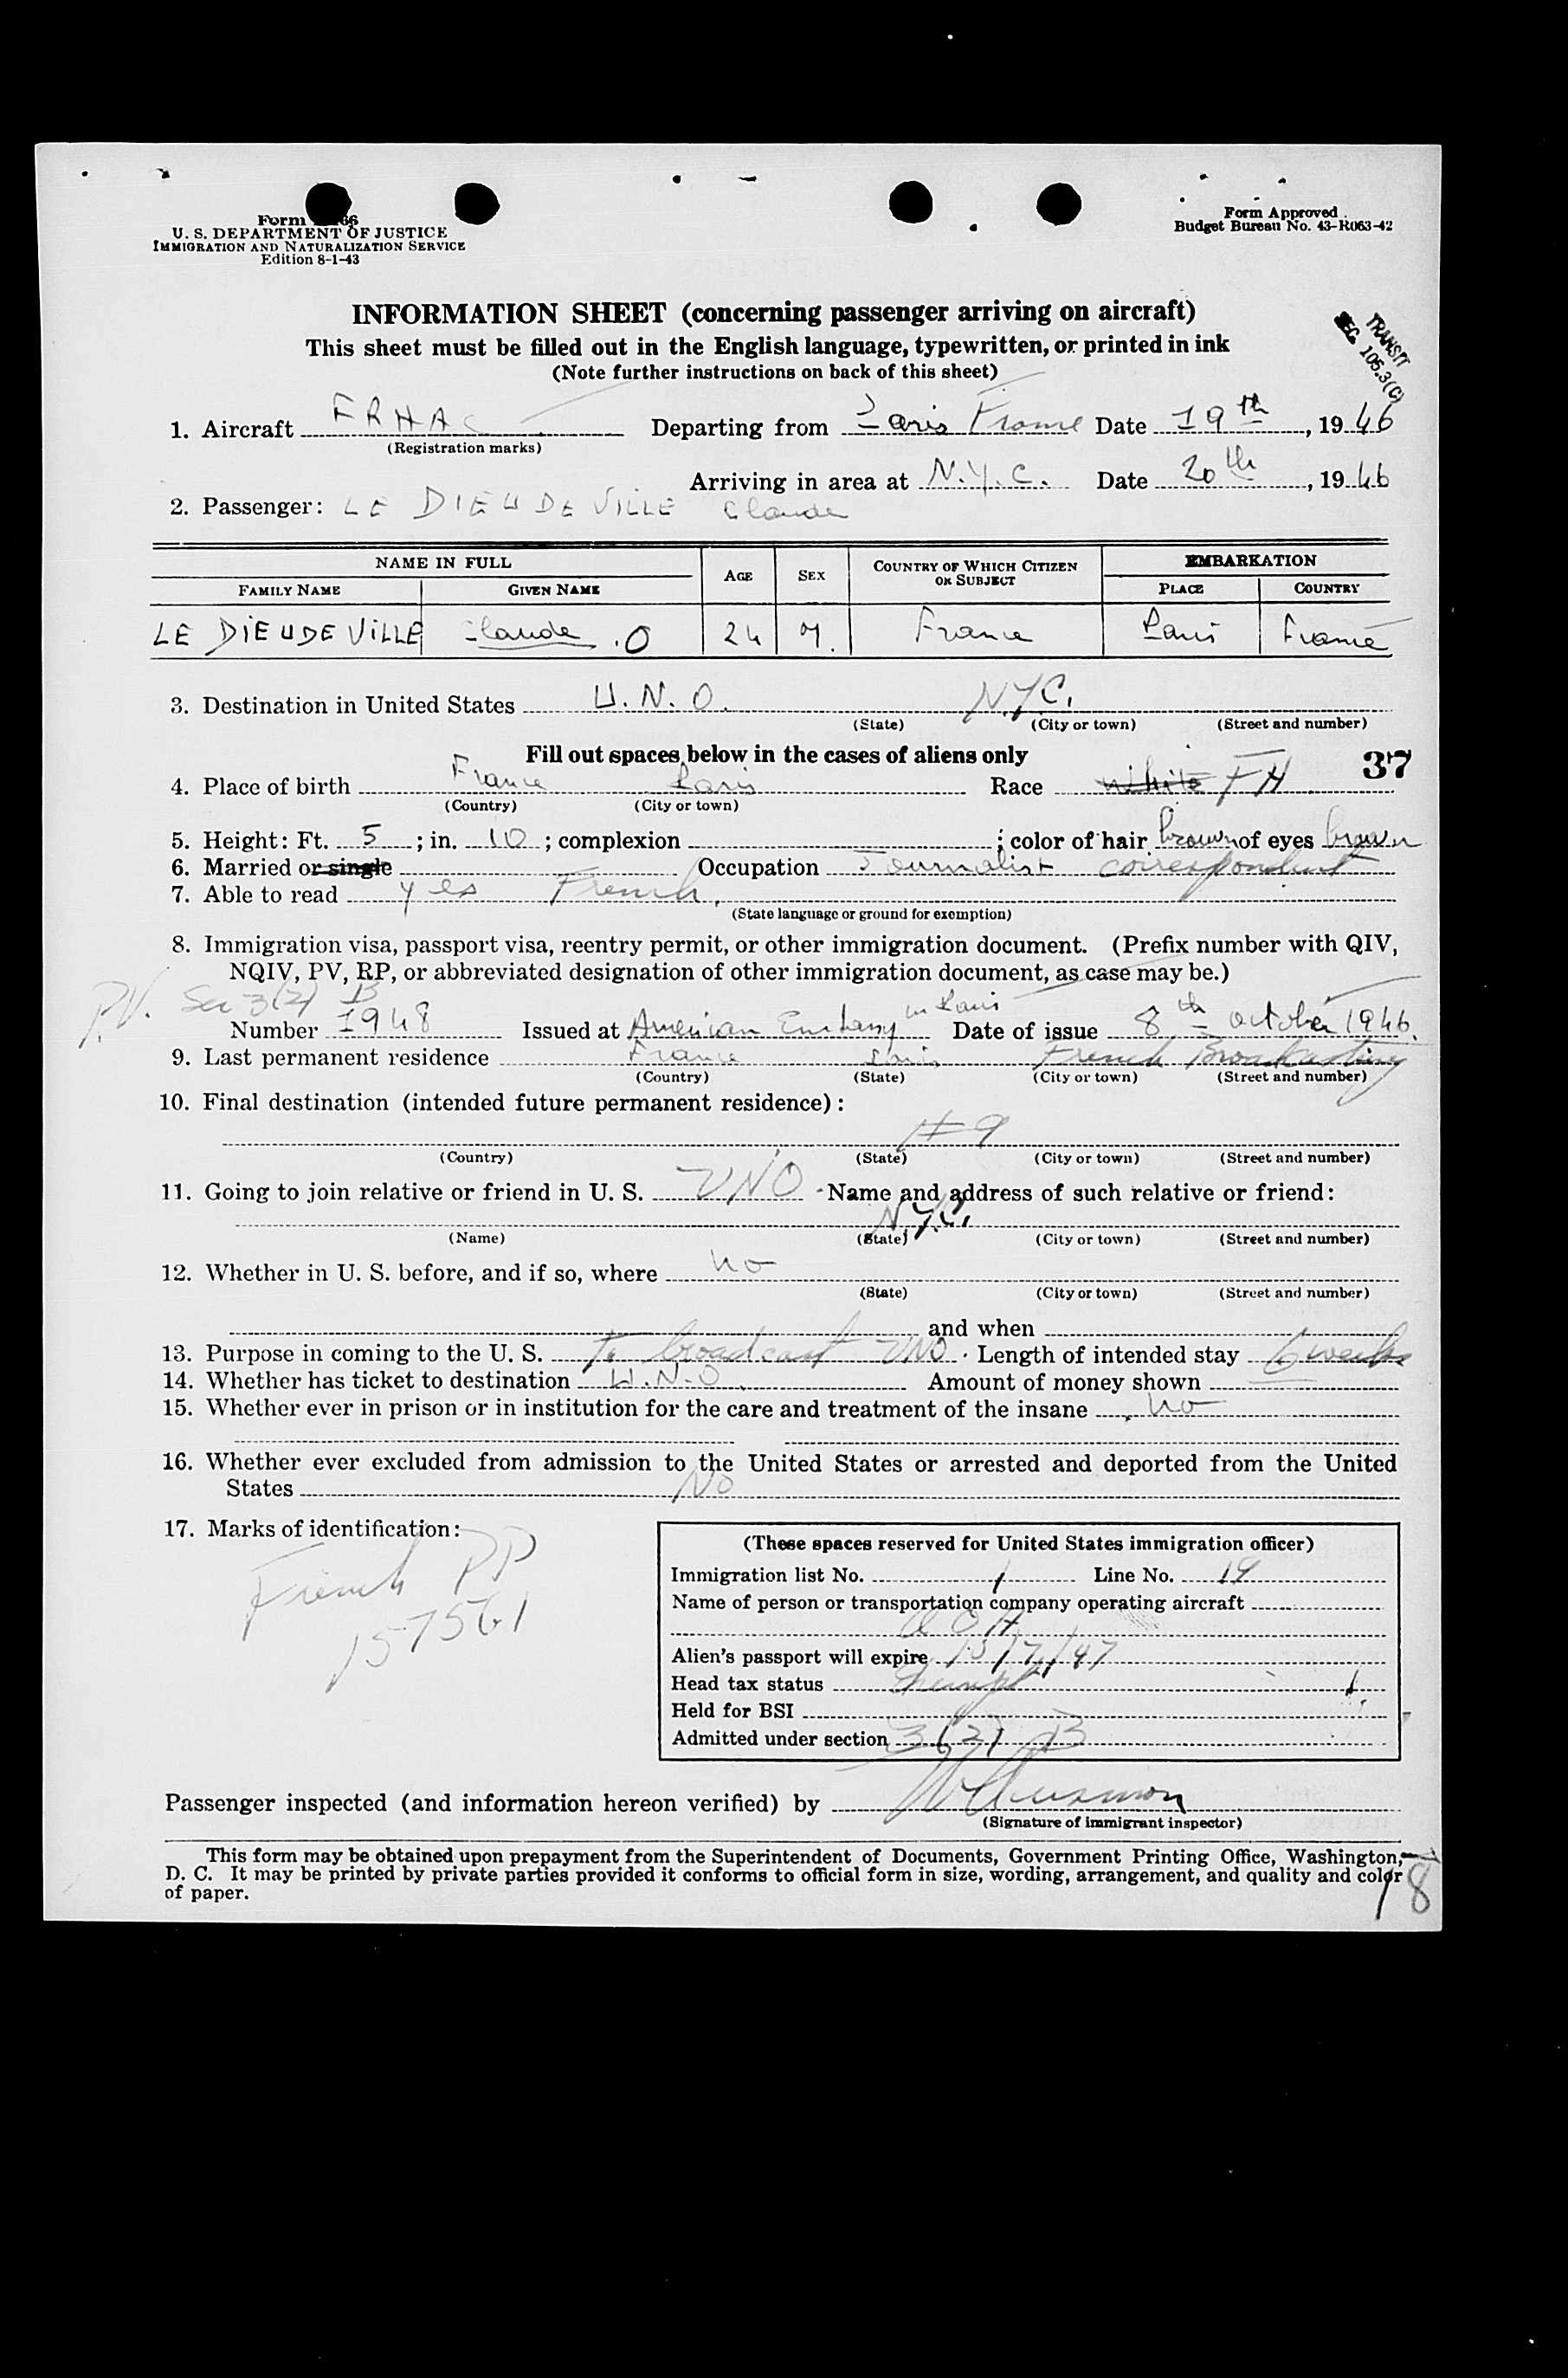 Form 66
U. S. DEPARTMENT OF JUSTICE
IMMIGRATION AND NATURALIZATION SERVICE
Edition 8-1-43
Form Approved
Budget Bureau No. 43-R063-42
INFORMATION SHEET (concerning passenger arriving on aircraft)
This sheet must be filled out in the English language, typewritten, or printed in ink
(Note further instructions on back of this sheet)
TRANSIT
SEC 105.3(C)
1. Aircraft FRHAC Departing from Paris France Date 19th, 1946
(Registration marks)
Arriving in area at N.Y.C. Date 20th, 1946
2. Passenger: LE DIEUDEVILLE Claude
NAME IN FULL AGE SEX COUNTRY OF WHICH CITIZEN OR SUBJECT EMBARKATION
FAMILY NAME GIVEN NAME PLACE COUNTRY
LE DIEUDEVILLE Claude .O 24 M. France Paris France
3. Destination in United States U.N.O. N.Y.C.
(State) (City or town) (Street and number)
Fill out spaces below in the cases of aliens only
37
4. Place of birth France Paris Race white FH
(Country) (City or town)
5. Height: Ft. 5; in. 10; complexion ; color of hair brown of eyes brown
6. Married or single Occupation Journalist correspondent
7. Able to read yes French
(State language or ground for exemption)
8. Immigration visa, passport visa, reentry permit, or other immigration document. (Prefix number with QIV,
NQIV, PV, RP, or abbreviated designation of other immigration document, as case may be.)
P.V. Sec 3(2) B
Number 1948 Issued at American Embassy in Paris Date of issue 8th October 1946.
9. Last permanent residence France Paris French Broadcasting
(Country) (State) (City or town) (Street and number)
10. Final destination (intended future permanent residence):
#9
(Country) (State) (City or town) (Street and number)
11. Going to join relative or friend in U. S. UNO Name and address of such relative or friend:
N.Y.C.
(Name) (State) (City or town) (Street and number)
12. Whether in U. S. before, and if so, where no
(State) (City or town) (Street and number)
and when
13. Purpose in coming to the U. S. To broadcast UNO. Length of intended stay 6 weeks
14. Whether has ticket to destination U.N.O. Amount of money shown
15. Whether ever in prison or in institution for the care and treatment of the insane no
16. Whether ever excluded from admission to the United States or arrested and deported from the United
States No
17. Marks of identification:
French PP
157561
(These spaces reserved for United States immigration officer)
Immigration list No. 1 Line No. 19
Name of person or transportation company operating aircraft
AOA
Alien's passport will expire 15/7/47
Head tax status Exempt
Held for BSI
Admitted under section 3(2) B
Passenger inspected (and information hereon verified) by
(Signature of immigrant inspector)
This form may be obtained upon prepayment from the Superintendent of Documents, Government Printing Office, Washington,
D. C. It may be printed by private parties provided it conforms to official form in size, wording, arrangement, and quality and color
of paper.
18